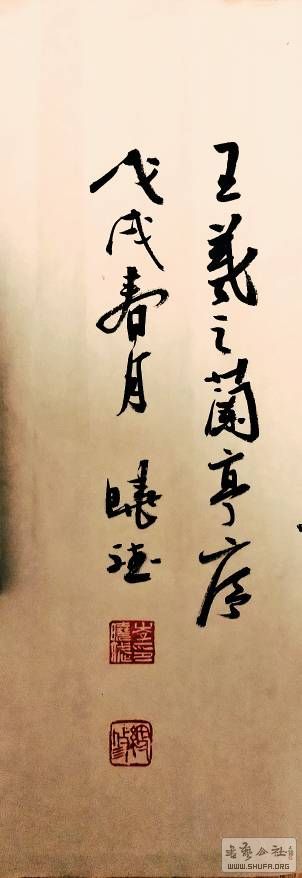 王羲之蘭亭序
戊戌春月
曉德
书艺公社
WWW.SHUFA.ORG